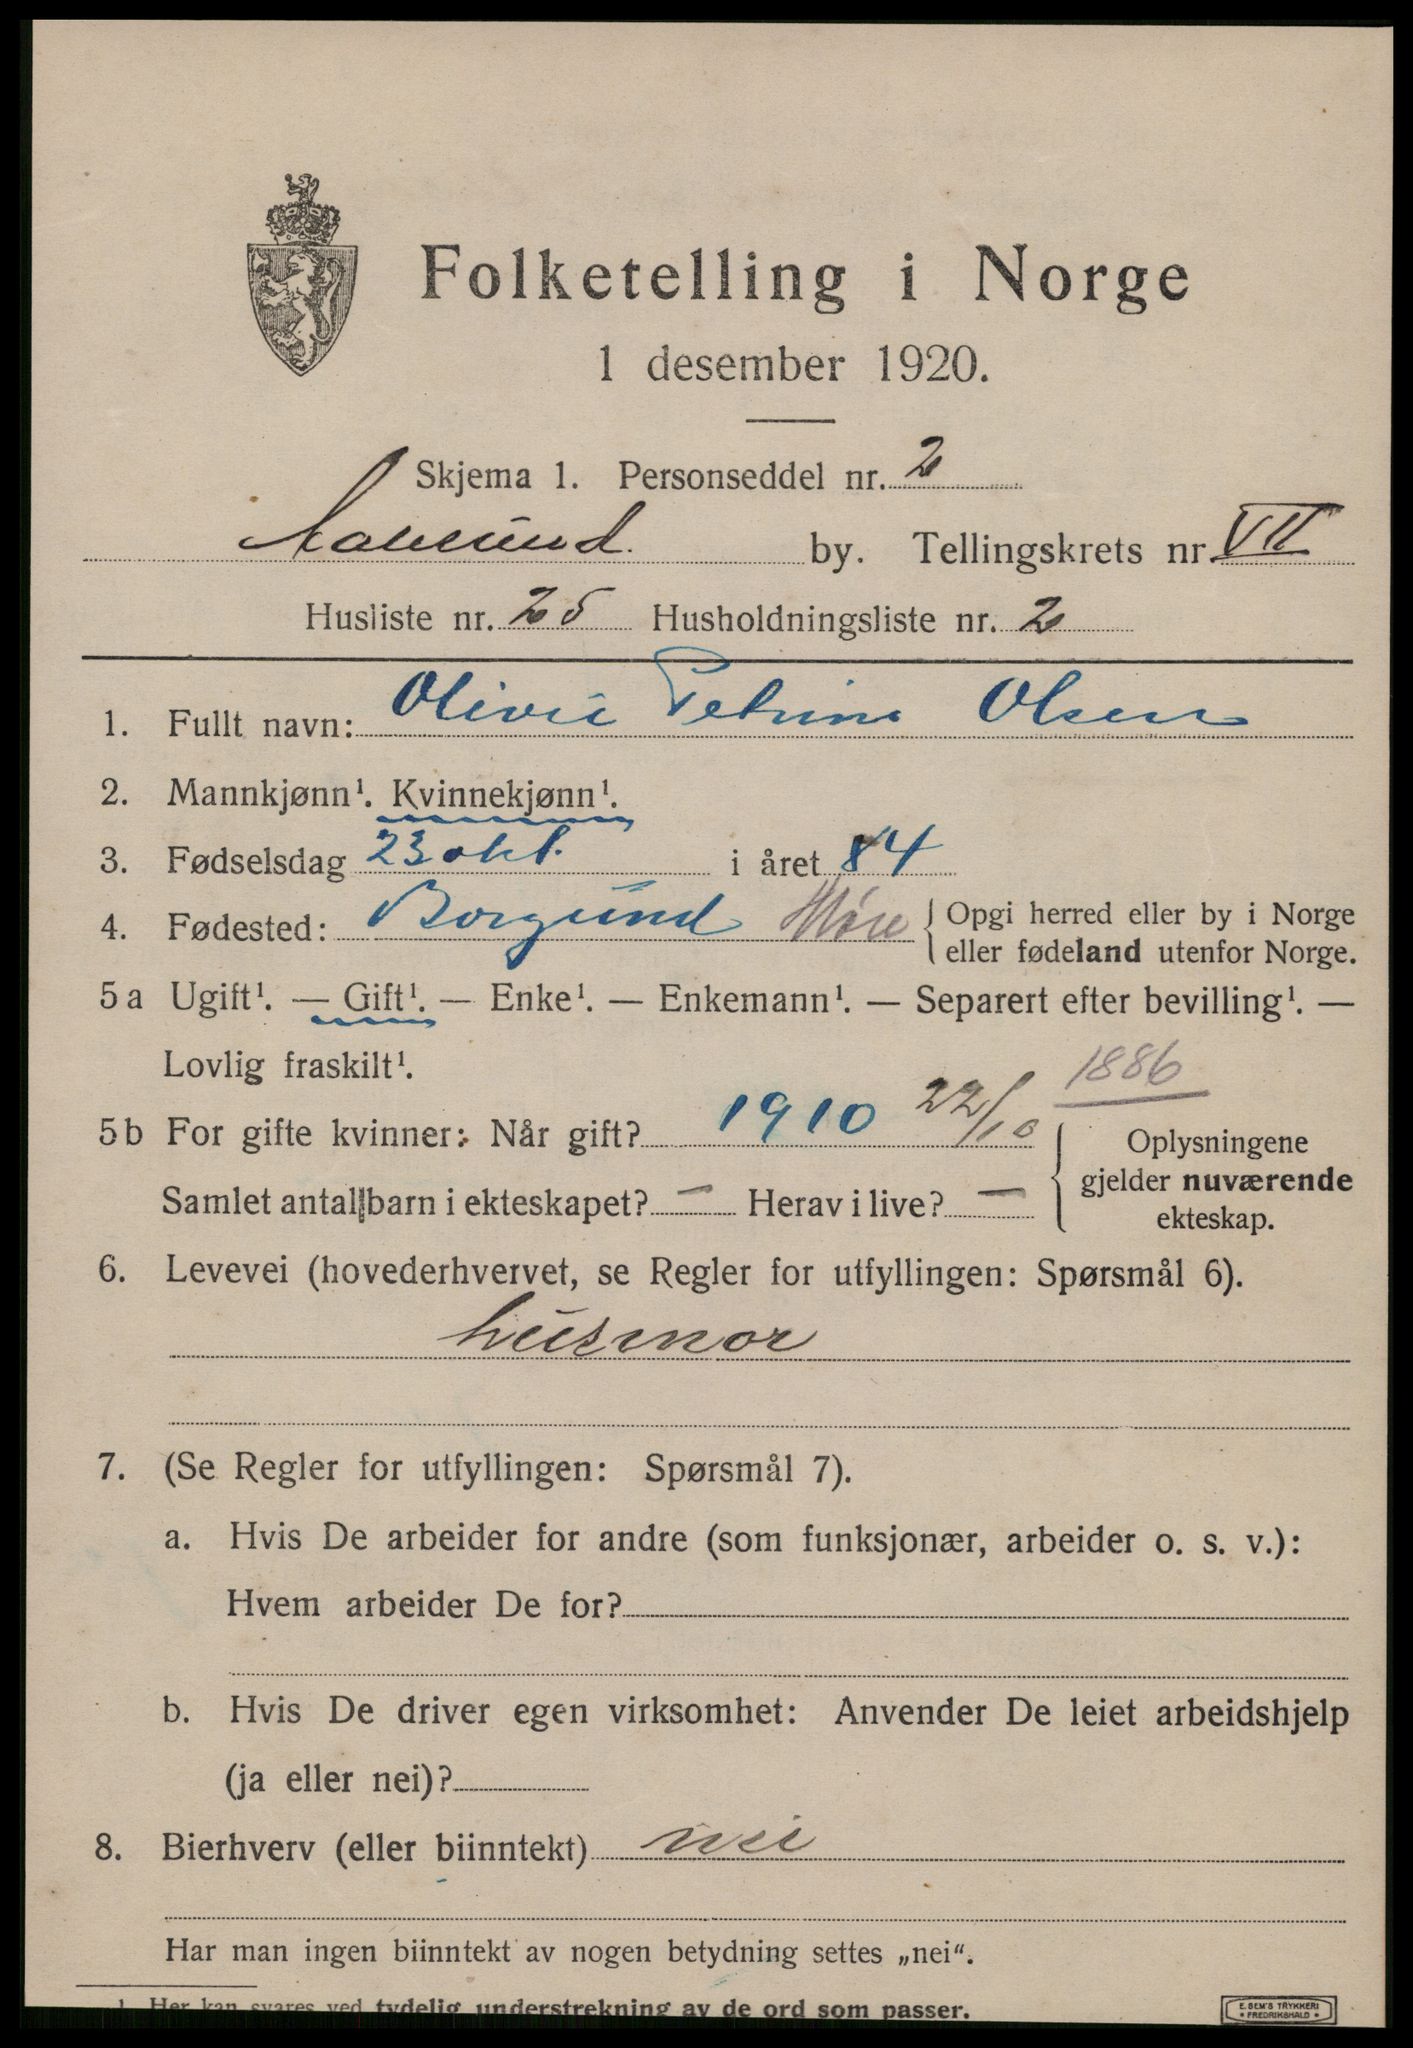 Folketelling i Norge
1 desember 1920.
Skjema 1. Personseddel nr. 2
Aalesund by. Tellingskrets nr VII
Husliste nr. 25 Husholdningsliste nr. 2
1. Fullt navn: Olivie Petrine Olsen
2. Mannkjønn¹. Kvinnekjønn¹.
3. Fødselsdag 23 okt. i året 84
4. Fødested: Borgund Møre { Opgi herred eller by i Norge
eller fødeland utenfor Norge.
5 a Ugift¹. — Gift¹. — Enke¹. — Enkemann¹. — Separert efter bevilling¹. —
Lovlig fraskilt¹.
1886
5 b For gifte kvinner: Når gift? 1910 22/10
Samlet antal barn i ekteskapet? — Herav i live? —
Oplysningene
gjelder nuværende
ekteskap.
6. Levevei (hovederhvervet, se Regler for utfyllingen: Spørsmål 6).
husmor
7. (Se Regler for utfyllingen: Spørsmål 7).
a. Hvis De arbeider for andre (som funksjonær, arbeider o. s. v.):
Hvem arbeider De for?
b. Hvis De driver egen virksomhet: Anvender De leiet arbeidshjelp
(ja eller nei)?
8. Bierhverv (eller biinntekt) nei
Har man ingen biinntekt av nogen betydning settes „nei“.
1 Her kan svares ved tydelig understrekning av de ord som passer.
E. SEM'S TRYKKERI
• FREDRIKSHALD •